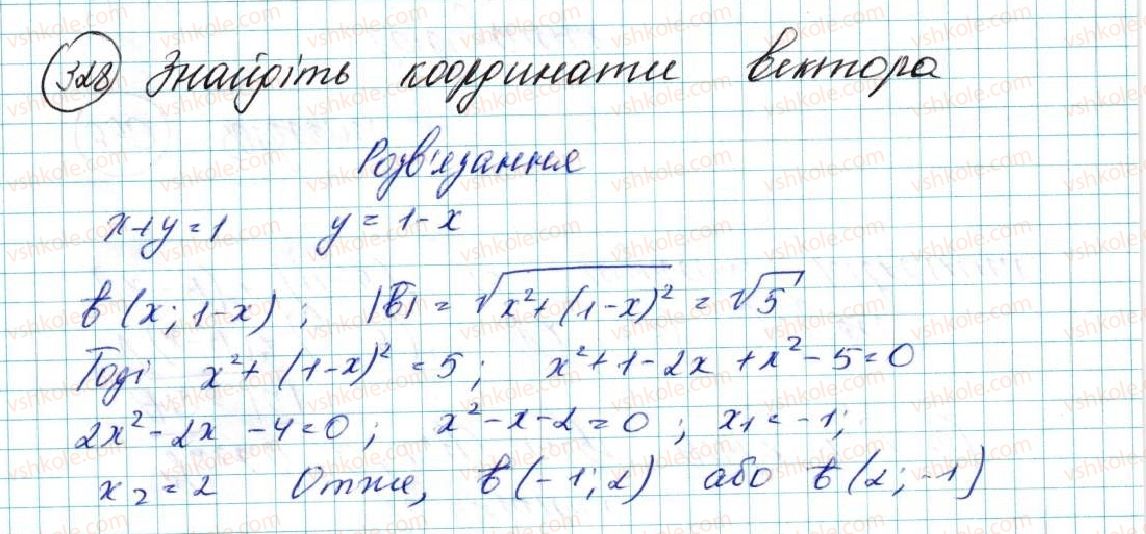 328 Знайдіть координати вектора
Розв'язання
x+y=1 y=1-x
b̄(x; 1-x); |b̄| = √(x²+(1-x)²) = √5
Тоді x²+(1-x)²=5; x²+1-2x+x²-5=0
2x²-2x-4=0; x²-x-2=0; x₁=-1;
x₂=2 Отже, b̄(-1;2) або b̄(2;-1)